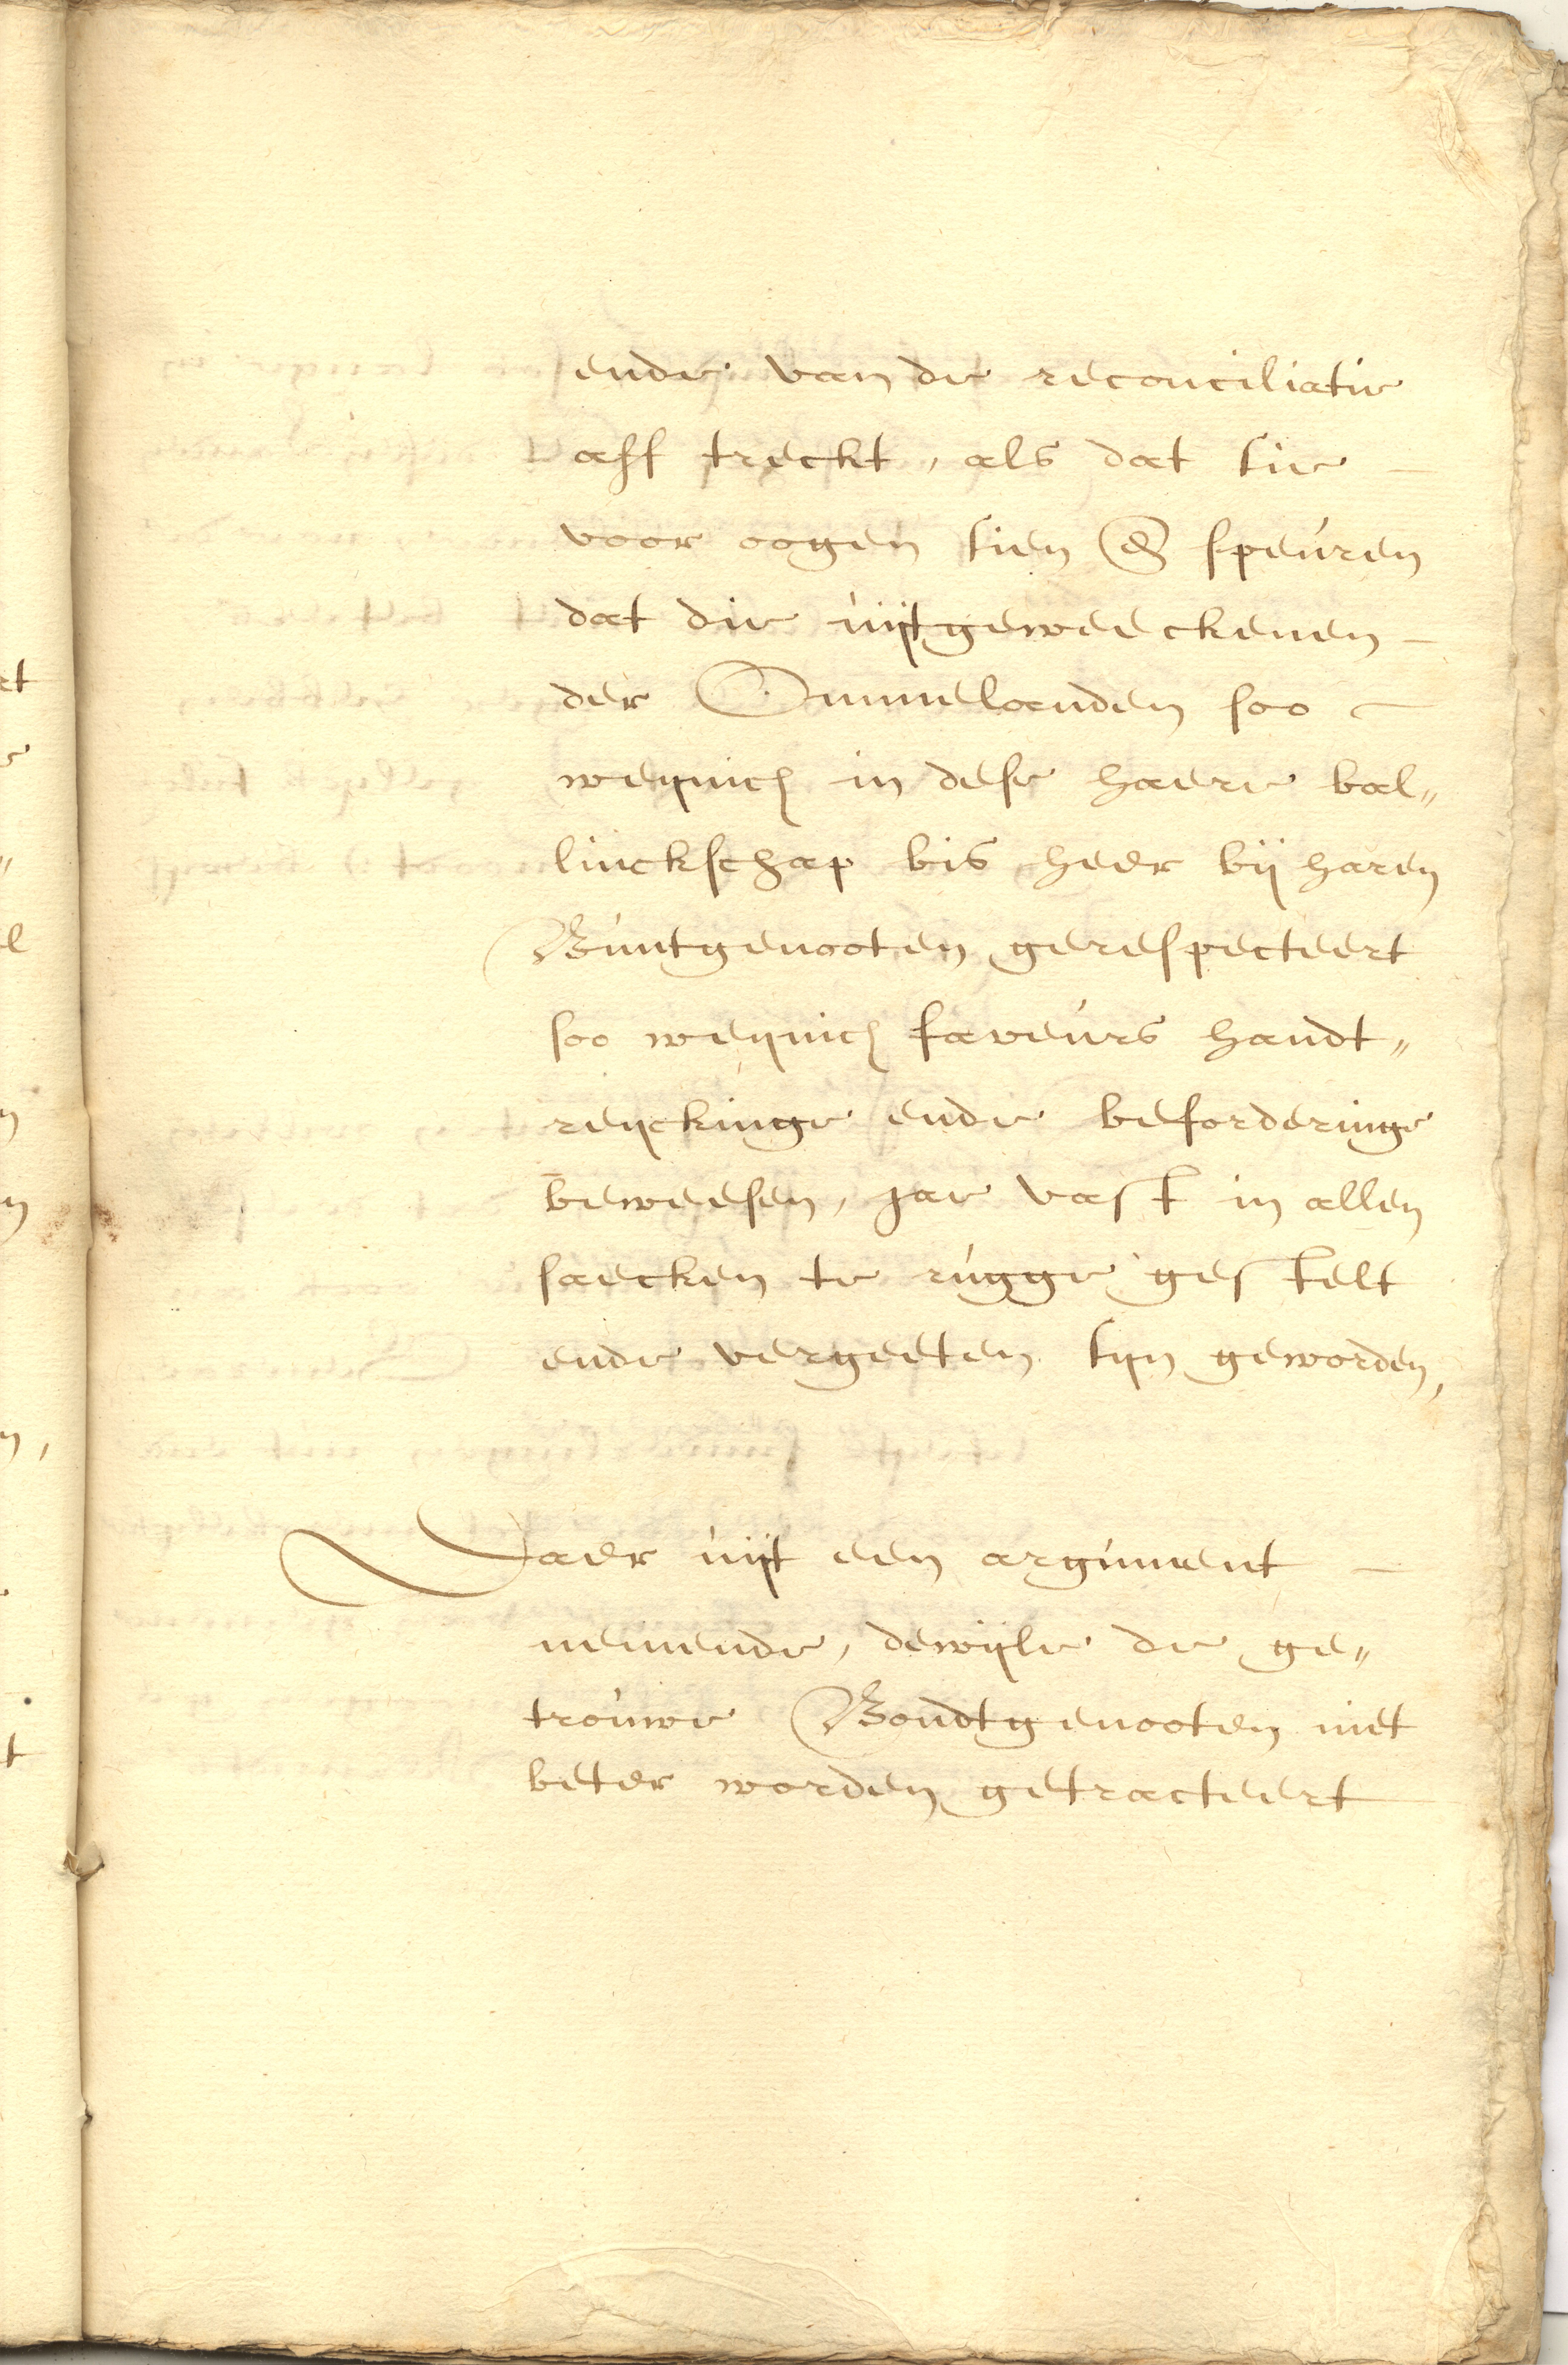 ende van de reconciliatie
aff treckt, als dat sie
voor oogen sien & speuren
dat die uijtgeweeckenen
der Ommelanden soo
weijnich in dese haere bal„
linckschap bis heer bij haren
Buntgenooten gerespecteert
soo weijnich faveurs handt„
reijckinge ende beforderinge
beweesen, jae vast in allen
saecken te rugge gestelt
ende vergeeten sijn geworden,
Daer uijt een argument
nemende, dewijle de ge„
trouwe Bondtgenooten niet
beter worden getracteert